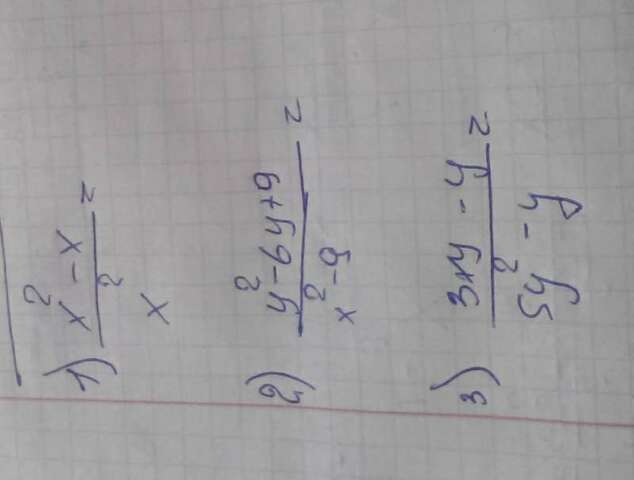 1) x² - x / x² =
2) y² - 6y + 9 / x² - 9 =
3) 3xy - y / 5y² - y =